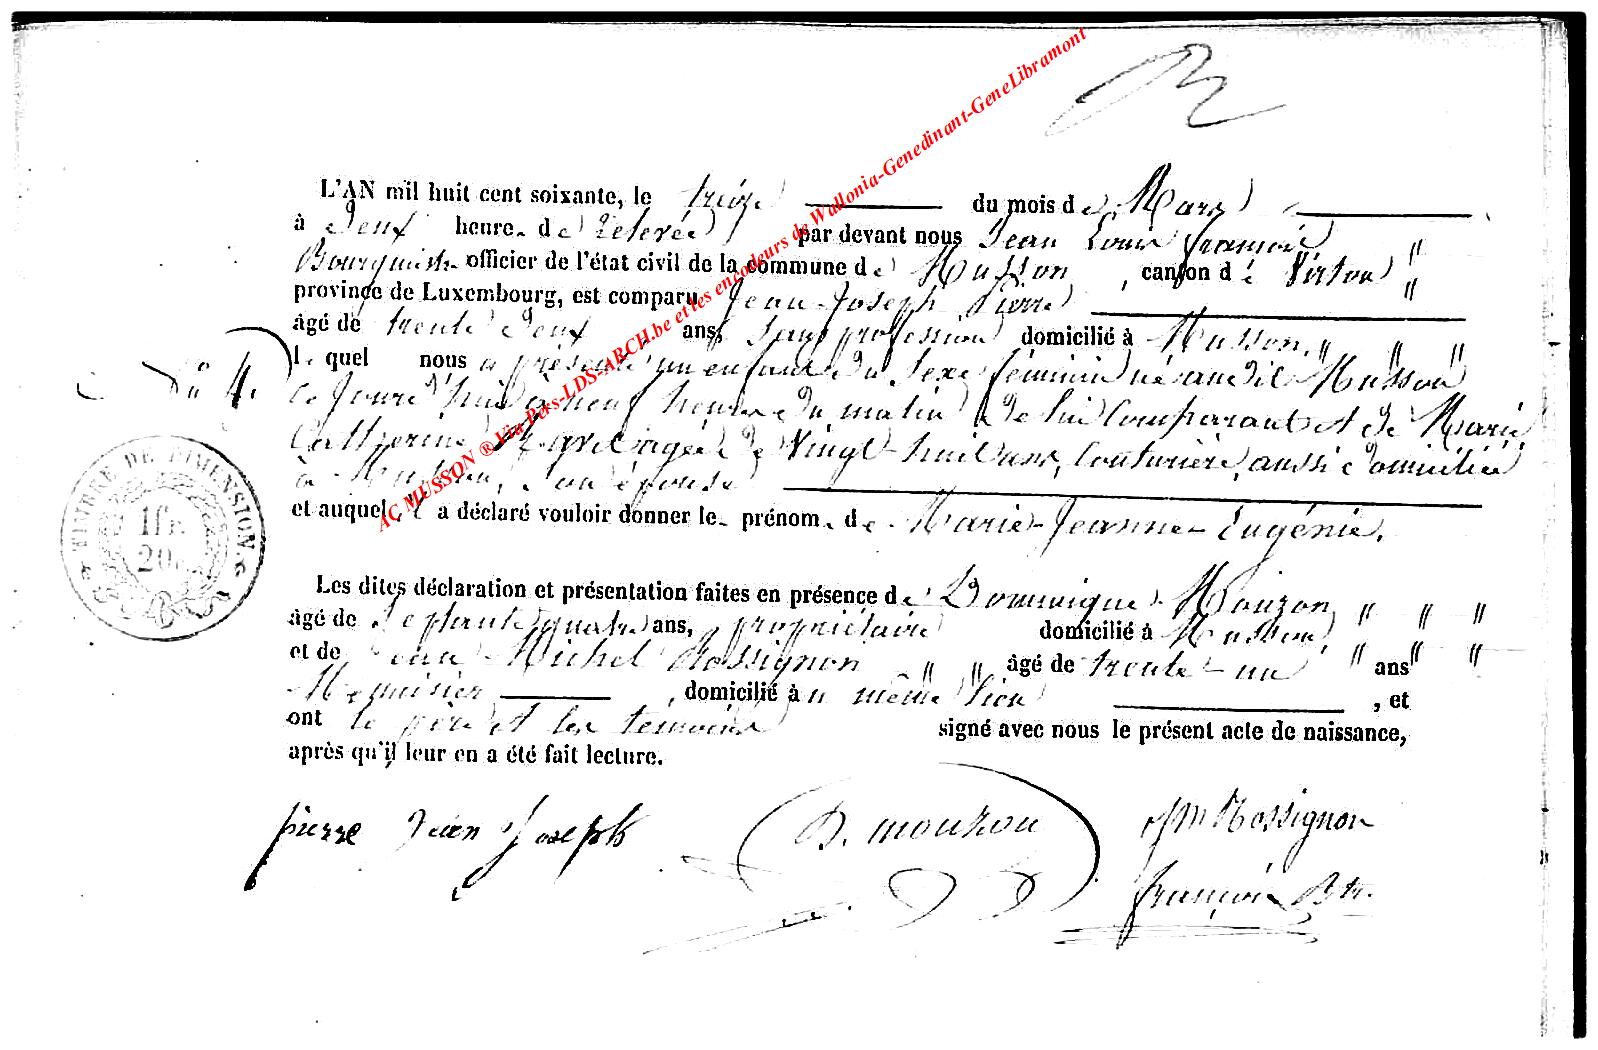 L'AN mil huit cent soixante, le treize du mois de Mars
à deux heure de relevée par devant nous Jean Louis François
Bourgmestre officier de l'état civil de la commune de Musson, canton de Virton "
province de Luxembourg, est comparu Jean-Joseph Pierre "
âgé de trente deux ans, sans profession domicilié à Musson, " " "
lequel nous a présenté un enfant du sexe féminin né audit Musson
N° 4.
ce jourd'hui à neuf heures du matin de lui comparant et de Marie
Catherine âgée de vingt-huit ans, couturière, aussi domiciliée
à Musson, son épouse
et auquel il a déclaré vouloir donner le prénom de Marie-Jeanne-Eugénie.
TIMBRE DE DIMENSION.
1 fr.
20
Les dites déclaration et présentation faites en présence de Dominique Mouzon, " " "
âgé de septante quatre ans, propriétaire domicilié à Musson, " "
et de Jean Michel Rossignon " " âgé de trente-un " ans " "
Menuisier, domicilié au même lieu, et
ont le père et les témoins signé avec nous le présent acte de naissance,
après qu'il leur en a été fait lecture.
pierre jean Joseph D. mouzon JM Rossignon
françois Btre.
AC MUSSON ® Via Pers-LDS-ARCH.be et les encodeurs de Wallonia-Genedinant-GeneLibramont